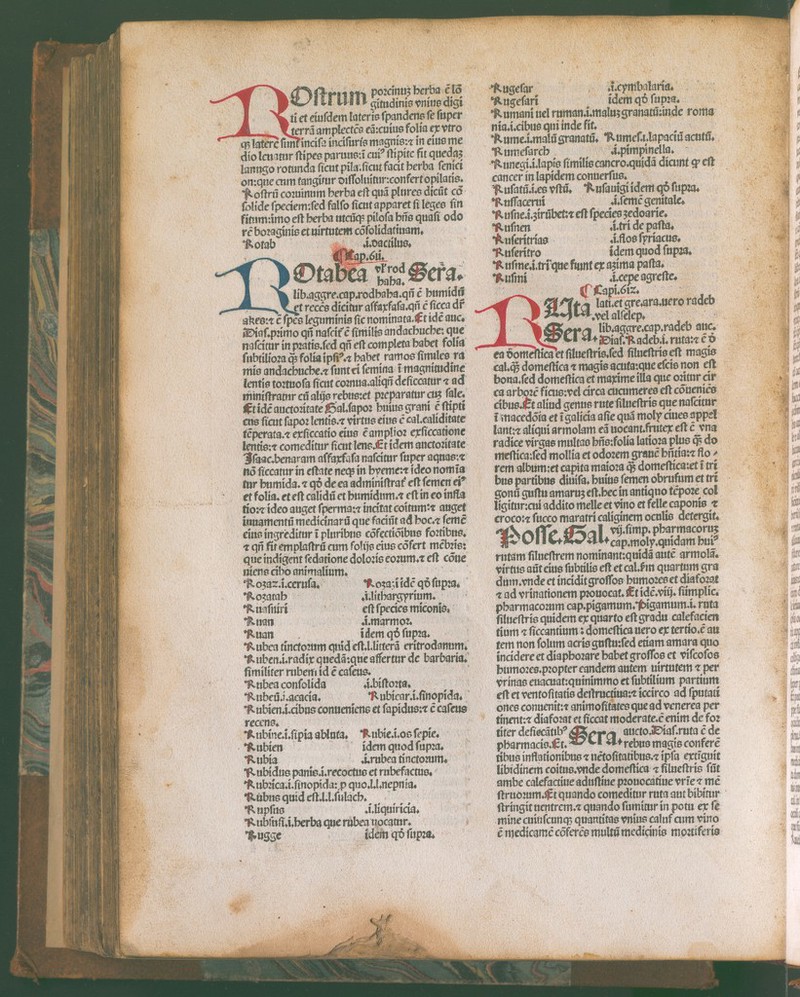 ROstrum porcinuʒ herba ē lō
gitudinis vnius digi
ti et eiusdem lateris spandens se super
terrā amplectēs eā:cuius folia ex vtro
qʒ latere sunt incisa incisuris magnis:⁊ in eius me
dio leuatur stipes paruus:ī cuiꝰ stipite fit quedaʒ
lanugo rotunda sicut pila:sicut facit herba senici
on:que cum tangitur dissoluitur:confert opilatis.
Rostrū coruinum herba est quā plures dicūt cō
solide speciem:sed falso sicut apparet si leges sin
fitum:imo est herba utcūqʒ pilosa hn̄s quasi odo
rē boraginis et uirtutem cōsolidatiuam.
Rotab .i.dactilus.
¶ Cap.611.
ROtabea vl' rod Sera.
baba.
lib.aggre.cap.rodbaba.qn̄ ē humidū
et recēs dicitur affaxfasa.qn̄ ē sicca dr̄
akes:⁊ ē spēs leguminis sic nominata.Et idē auc.
Dias.primo qn̄ nascit ē similis andachuche: que
nascitur in pratis.sed qn̄ est completa habet folia
subtiliora qʒ folia ipsiꝰ.⁊ habet ramos similes ra
mis andachuche.⁊ sunt ei semina ī magnitudine
lentis tortuosa sicut cornua.aliqn̄ desiccatur ⁊ ad
ministratur cū alijs rebus:et preparatur cuʒ sale.
Et idē auctoritate Gal.sapor huius grani ē stipti
cus sicut sapor lentis.⁊ virtus eius ē cal.caliditate
tēperata.⁊ exsiccatio eius ē amplior exsiccatione
lentis:⁊ comeditur sicut lens.Et idem auctoritate
Isaac.benaram affaxfasa nascitur super aquas:⁊
nō siccatur in estate neqʒ in hyeme:⁊ ideo nomīa
tur humida. ⁊ qd̄ de ea administrat est semen eiꝰ
et folia. et est calidū et humidum.⁊ est in eo infla
tio:⁊ ideo auget sperma:⁊ incitat coitum:⁊ auget
iuuamentū medicinarū que faciūt ad hoc.⁊ semē
eius ingreditur ī pluribus cōfectiōibus fortibus.
⁊ qn̄ fit emplastrū cum folijs eius cōfert mēbris:
que indigent sedatione doloris eorum.⁊ est cōue
niens cibo animalium.
Roraz.i.cerusa. Rora:i idē qd̄ supra.
Roratab .i.lithargyrium.
Ruasuiri est species miconis.
Ruan .i.marmor.
Ruan idem qd̄ supra.
Rubea tinctorum quid est.l.litterā eritrodanum.
Ruben.i.radix quedā:que affertur de barbaria.
similiter rubem id ē caseus.
Rubea consolida .i.bistorta.
Rubeū.i.acacia. Rubicar.i.sinopida.
Rubien.i.cibus conueniens et sapidus:⁊ ē caseus
recens.
Rubine.i.sipia abluta. Rubie.i.os sepie.
Rubien idem quod supra.
Rubia .i.rubea tinctorum.
Rubidus panis.i.recoctus et rubefactus.
Rubrica.i.sinopida:ꝓ quo.l.l.nepnia.
Rubus quid est.l.l.fulach.
Rupsus .i.liquiricia.
Rubsusi.i.herba que rubea uocatur.
Rugge idem qd̄ supra.
Rugesar .i.cymbalaria.
Rugesari idem qd̄ supra.
Rumani uel ruman.i.malus granatū:inde roma
nia.i.cibus qui inde fit.
Rume.i.malū granatū. Rumesa.i.lapaciū acutū.
Rumesarch .i.pimpinella.
Runegi.i.lapis similis cancro.quidā dicunt ꝙ est
cancer in lapidem conuersus.
Rusatū.i.es vstū. Rusauigi idem qd̄ supra.
Russacerui .i.semē genitale.
Rusne.i.zirūbet:⁊ est species zedoarie.
Rusnen .i.tri de pasta.
Ruseritrias .i.flos syriacus.
Ruseritro idem quod supra.
Rusme.i.tri que fiunt ex azima pasta.
Rusini .i.cepe agreste.
¶ Capi.612.
RUta lati.et gre.ara.uero radeb
.vel alselep.
Sera. lib.aggre.cap.radeb auc.
Dias.Radeb.i. ruta:⁊ ē d̄
ea domestica et siluestris.sed siluestris est magis
cal.qʒ domestica ⁊ magis acuta:que escis non est
bona.sed domestica et maxime illa que oritur cir
ca arborē ficus:vel circa cucumeres est cōueniēs
cibus.Et aliud genus rute siluestris que nascitur
ī macedōia et ī galicia asie quā moly ciues appel
lant:⁊ aliqui armolam eā uocant.frutex est ē vna
radice virgas multas hn̄s:folia latiora plus qʒ do
mestica:sed mollia et odorem grauē hn̄tia:⁊ flo
rem album:et capita maiora qʒ domestica:et ī tri
bus partibus diuisa. huius semen obrufum et tri
gonū gustu amaruʒ est.hec in antiquo tēpore col
ligitur:cui addito melle et vino et felle caponis ⁊
croco:⁊ succo maratri caliginem oculis detergit.
Posse.Gal. vij.simp. pharmacoruʒ
cap.moly.quidam huiꝰ
rutam siluestrem nominant:quidā autē armolā.
virtus aūt eius subtilis est et cal.sin quartum gra
dum.vnde et incidit grossos humores et diaforat
⁊ ad vrinationem prouocat.Et idē.viij. simplic.
pharmacorum cap.pigamum.Pigamum.i. ruta
siluestris quidem ex quarto est gradu calefacien
tium ⁊ siccantium : domestica uero ex tertio.ē au
tem non solum acris gustu:sed etiam amara quo
incidere et diaphorare habet grossos et viscosos
humores.propter eandem autem uirtutem ⁊ per
vrinas euacuat:quinimmo et subtilium partium
est et ventositatis destructiua:⁊ iccirco ad sputati
ones conuenit:⁊ animositates que ad venerea per
tinent:⁊ diaforat et siccat moderate.ē enim de for
titer desiccātibꝰ Sera aucto.Dias.ruta ē de
pharmacis.Et. rebus magis conferē
tibus inflationibus ⁊ uētositatibus.⁊ ipsa extiguit
libidinem coitus.vnde domestica ⁊ siluestris sūt
ambe calefactiue adustiue prouocatiue vrīe ⁊ mē
struorum.Et quando comeditur ruta aut bibitur
stringit uentrem.⁊ quando sumitur in potu ex se
mine cuiuscunqʒ quantitas vnius calus cum vino
ē medicamē cōferēs multū medicinis mortiferis